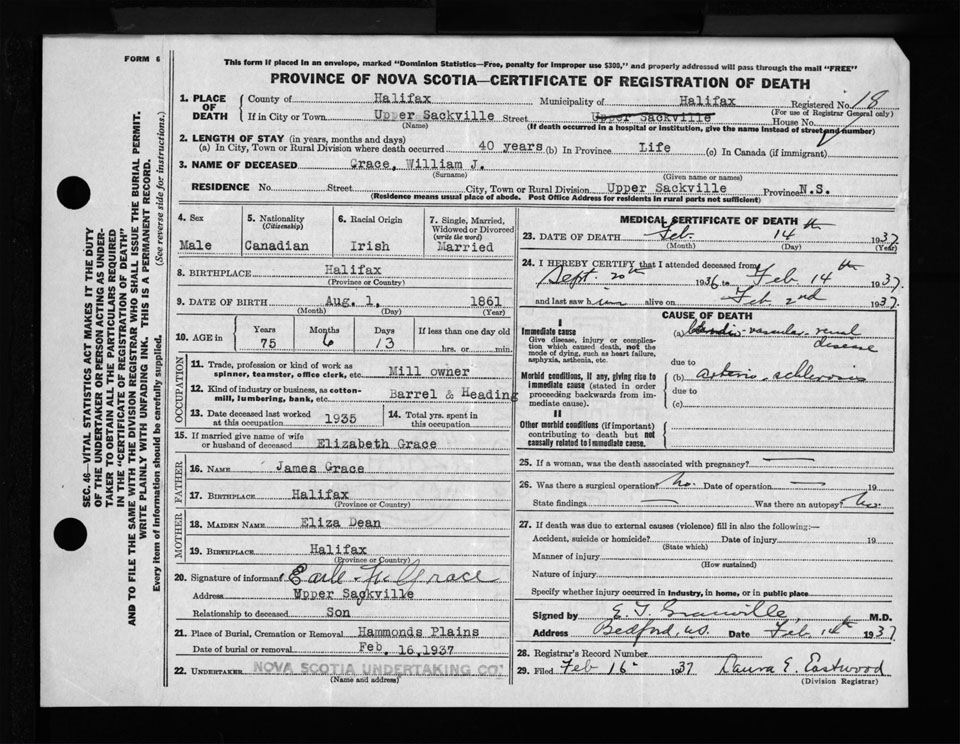 FORM 6
This form if placed in an envelope, marked "Dominion Statistics—Free, penalty for improper use $300," and properly addressed will pass through the mail "FREE"
PROVINCE OF NOVA SCOTIA—CERTIFICATE OF REGISTRATION OF DEATH
1. PLACE OF DEATH
County of Halifax Municipality of Halifax Registered No. 18
(For use of Registrar General only)
If in City or Town Upper Sackville Street Upper Sackville House No.
(Name) (If death occurred in a hospital or institution, give the name instead of street and number)
2. LENGTH OF STAY (in years, months and days)
(a) In City, Town or Rural Division where death occurred 40 years (b) In Province Life (c) In Canada (if immigrant)
3. NAME OF DECEASED Grace, William J.
(Surname) (Given name or names)
RESIDENCE No. Street City, Town or Rural Division Upper Sackville Province N.S.
(Residence means usual place of abode. Post Office Address for residents in rural parts not sufficient)
4. Sex
Male
5. Nationality
(Citizenship)
Canadian
6. Racial Origin
Irish
7. Single, Married, Widowed or Divorced
(write the word)
Married
8. BIRTHPLACE Halifax
(Province or Country)
9. DATE OF BIRTH Aug. 1, 1861
(Month) (Day) (Year)
10. AGE in
Years Months Days If less than one day old
75 6 13 hrs. or min.
OCCUPATION
11. Trade, profession or kind of work as spinner, teamster, office clerk, etc. Mill owner
12. Kind of industry or business, as cotton-mill, lumbering, bank, etc. Barrel & Heading
13. Date deceased last worked at this occupation 1935
14. Total yrs. spent in this occupation
15. If married give name of wife or husband of deceased Elizabeth Grace
FATHER
16. NAME James Grace
17. BIRTHPLACE Halifax
(Province or Country)
MOTHER
18. MAIDEN NAME Eliza Dean
19. BIRTHPLACE Halifax
(Province or Country)
20. Signature of informant Grace
Address Upper Sackville
Relationship to deceased Son
21. Place of Burial, Cremation or Removal Hammonds Plains
Date of burial or removal Feb. 16, 1937
22. UNDERTAKER NOVA SCOTIA UNDERTAKING CO.
(Name and address)
MEDICAL CERTIFICATE OF DEATH
23. DATE OF DEATH Feb. 14th 1937
(Month) (Day) (Year)
24. I HEREBY CERTIFY that I attended deceased from
Sept. 20th 1936 to Feb 14th 1937
and last saw him alive on Feb 2nd 1937.
CAUSE OF DEATH
I
Immediate cause
Give disease, injury or complication which caused death, not the mode of dying, such as heart failure, asphyxia, asthenia, etc.
(a) Cardio-vascular-renal disease
due to
Morbid conditions, if any, giving rise to immediate cause (stated in order proceeding backwards from immediate cause).
(b) arterio-schlerosis
due to
(c)
II
Other morbid conditions (if important) contributing to death but not causally related to immediate cause.
25. If a woman, was the death associated with pregnancy? —
26. Was there a surgical operation? No. Date of operation — 19
State findings — Was there an autopsy? No.
27. If death was due to external causes (violence) fill in also the following:—
Accident, suicide or homicide? Date of injury 19
(State which)
Manner of injury
(How sustained)
Nature of injury
Specify whether injury occurred in industry, in home, or in public place
Signed by E. T. Granville, M.D.
Address Bedford, N.S. Date Feb. 14th 1937
28. Registrar's Record Number
29. Filed Feb 16 1937 Laura E. Eastwood
(Division Registrar)
SEC. 46—VITAL STATISTICS ACT MAKES IT THE DUTY
OF THE UNDERTAKER OR PERSON ACTING AS UNDER-
TAKER TO OBTAIN ALL THE PARTICULARS REQUIRED
IN THE "CERTIFICATE OF REGISTRATION OF DEATH"
AND TO FILE THE SAME WITH THE DIVISION REGISTRAR WHO SHALL ISSUE THE BURIAL PERMIT.
WRITE PLAINLY WITH UNFADING INK. THIS IS A PERMANENT RECORD.
Every item of information should be carefully supplied. (See reverse side for instructions.)